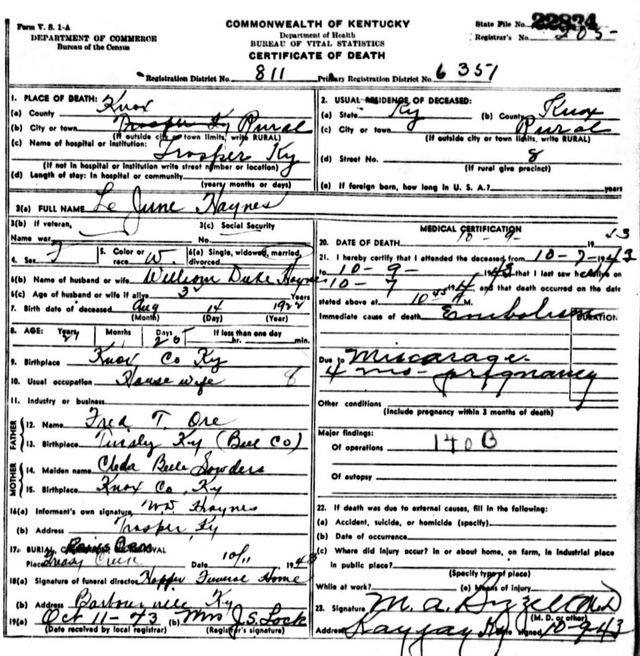 Form V. S. 1-A
DEPARTMENT OF COMMERCE
Bureau of the Census
COMMONWEALTH OF KENTUCKY
Department of Health
BUREAU OF VITAL STATISTICS
CERTIFICATE OF DEATH
State File No. 22824
Registrar's No. 205
Registration District No. 811 Primary Registration District No. 6351
1. PLACE OF DEATH:
(a) County Knox
(b) City or town Trosper Ky Rural
(If outside city or town limits, write RURAL)
(c) Name of hospital or institution:
Trosper Ky
(If not in hospital or institution write street number or location)
(d) Length of stay: In hospital or community
(years, months or days)
2. USUAL RESIDENCE OF DECEASED:
(a) State Ky (b) County Knox
(c) City or town Rural
(If outside city or town limits, write RURAL)
(d) Street No. 8
(If rural give precinct)
(e) If foreign born, how long in U. S. A.? years
3(a) FULL NAME Le June Haynes
3(b) If veteran,
Name war
3(c) Social Security
No.
4. Sex F 5. Color or race W. 6(a) Single, widowed, married, divorced
6(b) Name of husband or wife William Duke Haynes
6(c) Age of husband or wife if alive 32 Years
7. Birth date of deceased Aug 14 1922
(Month) (Day) (Year)
8. AGE: Years 21 Months Days 25 If less than one day
hr. min.
9. Birthplace Knox Co Ky
10. Usual occupation House wife 8
11. Industry or business
FATHER
12. Name Fred T. Ore
13. Birthplace Tinsley Ky (Bell Co)
MOTHER
14. Maiden name Cleda Belle Sowders
15. Birthplace Knox Co, Ky
16(a) Informant's own signature WD Haynes
(b) Address Trosper, Ky
17. BURIAL,
Place Creek Date 10/11 1943
18(a) Signature of funeral director Hopper Funeral Home
(b) Address Barbourville Ky
19(a) Oct 11-43 (b) Mrs J.S. Lock
(Date received by local registrar) (Registrar's signature)
MEDICAL CERTIFICATION
20. DATE OF DEATH 10-9- 1943
21. I hereby certify that I attended the deceased from 10-7 1943
to 10-9- 1943 that I last saw
10-7 and that death occurred on the date
stated above at 10 45 A M.
Immediate cause of death Embolism DURATION
Due to Miscarage
4 mo- pregnancy
Other conditions
(Include pregnancy within 3 months of death)
Major findings:
Of operations 140B
Of autopsy
22. If death was due to external causes, fill in the following:
(a) Accident, suicide, or homicide (specify)
(b) Date of occurrence
(c) Where did injury occur? In or about home, on farm, in industrial place
in public place?
(Specify type of place)
While at work? (e) Means of injury
23. Signature M. a.
(M. D. or other)
Address Kayjay Ky Date signed 10-9-43